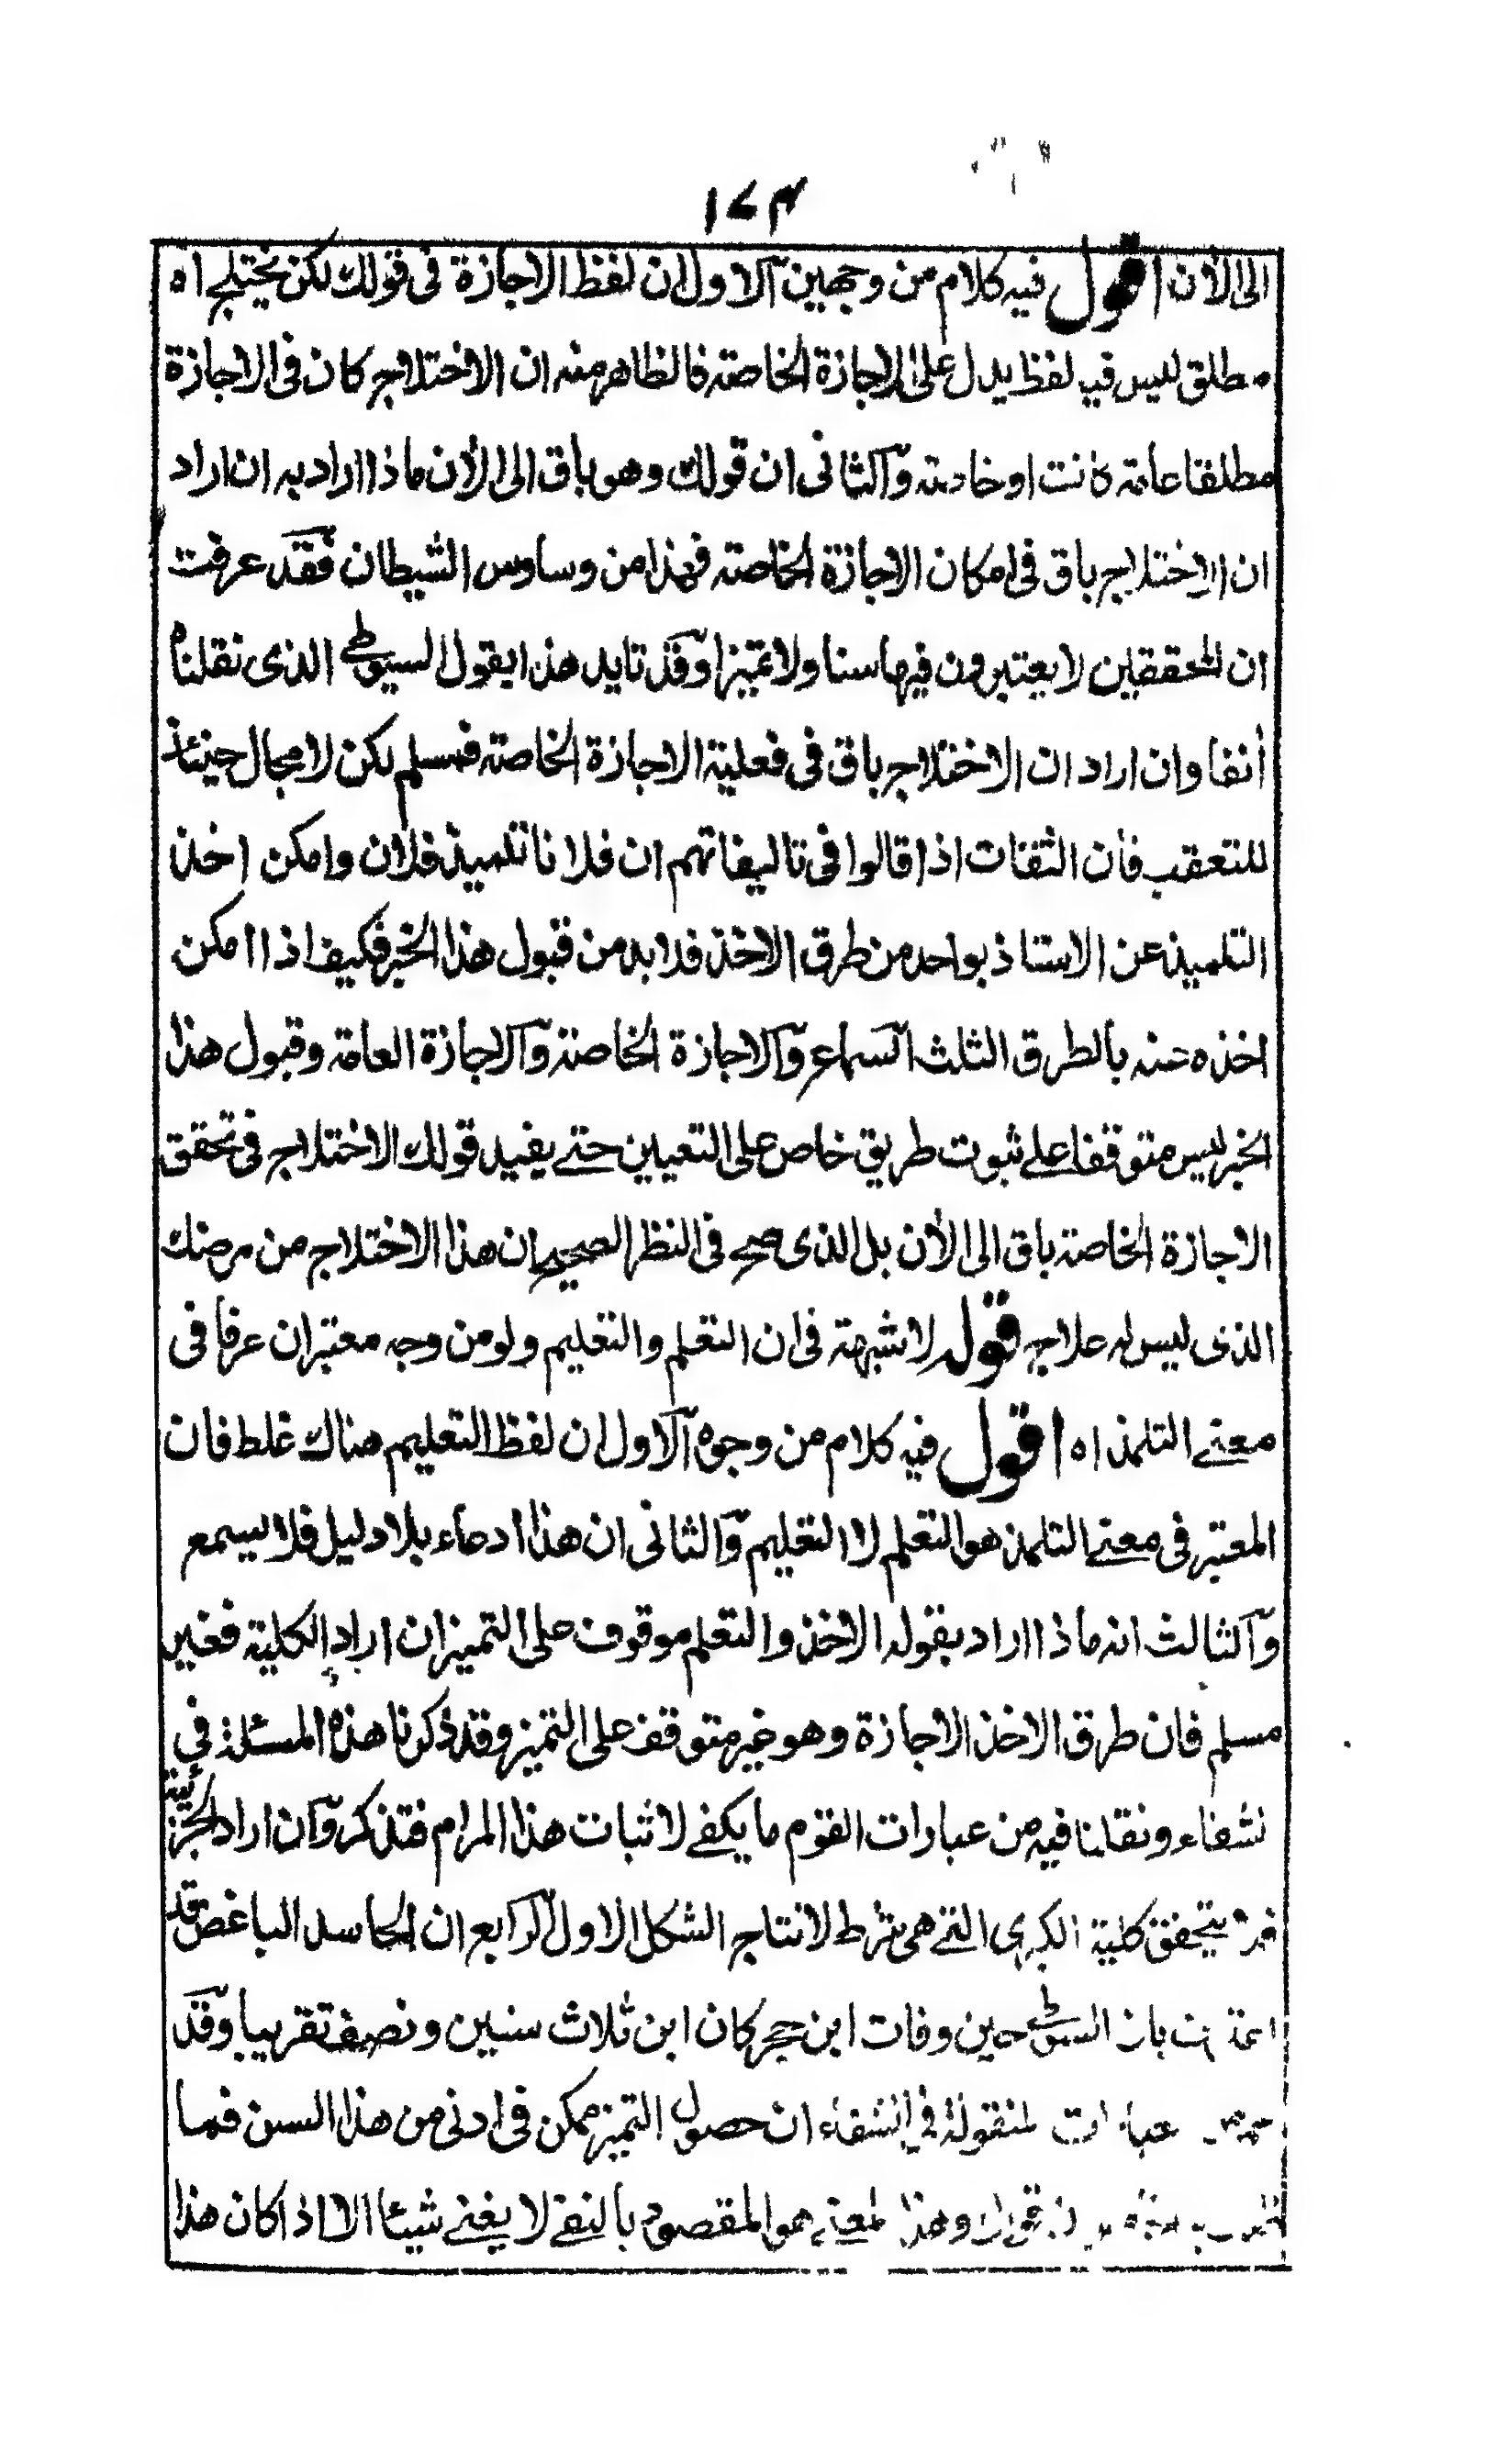 ١٧٤
الى الأن اقول فيه كلام من وجهين الاول ان لفظ الاجازة فى قولك لكن يختلج اه
مطلق ليس فيه لفظ يدل على الاجازة الخاصة فالظاهر منه ان الاختلاج كان فى الاجازة
مطلقا عامة كانت او خاصة والثانى ان قولك وهو باق الى الأن ماذا اراد به ان اراد
ان الاختلاج باق فى امكان الاجازة الخاصة فهذا من وساوس الشيطان فقد عرفت
ان المحققين لا يعتبرون فيها سنا ولا تميزا وقد تايد هذا بقول السيوطى الذى نقلناه
أنفا وان اراد ان الاختلاج باق فى فعلية الاجازة الخاصة فمسلم لكن لا مجال حينئذ
للتعقب فان الثقات اذا قالوا فى تاليفاتهم ان فلانا تلميذ فلان وامكن اخذ
التلميذ عن الاستاذ بواحد من طرق الاخذ فلا بد من قبول هذا الخبر فكيف اذا امكن
اخذه عنه بالطرق الثلث السماع والاجازة الخاصة والاجازة العامة وقبول هذا
الخبر ليس متوقفا على ثبوت طريق خاص على التعيين حتى يفيد قولك الاختلاج فى تحقق
الاجازة الخاصة باق الى الأن بل الذى صح فى النظر الصحيح ان هذا الاختلاج من مرضك
الذى ليس له علاج قوله لا شبهة فى ان التعلم والتعليم ولو من وجه معتبران عرفا فى
معنى التلمذ اه اقول فيه كلام من وجوه الاول ان لفظ التعليم هناك غلط فان
المعتبر فى معنى التلمذ هو التعلم لا التعليم والثانى ان هذا ادعاء بلا دليل فلا يسمع
والثالث انه ماذا اراد بقوله الاخذ والتعلم موقوف على التميز ان اراد الكلية فغير
مسلم فان طرق الاخذ الاجازة وهو غير متوقف على التميز وقد ذكرنا هذه المسئلة فى
شفاء ونقلنا فيه من عبارات القوم ما يكفى لاثبات هذا المرام فتذكر وان اراد الجزئية
فلا يتحقق كلية الكبرى التى هى شرط لانتاج الشكل الاول الرابع ان الحاسد الباغض قد
بان السيوطى حين وفات ابن حجر كان ابن ثلاث سنين ونصف تقريبا وقد
عبارات المنقولة فى الشفاء ان حصول التميز ممكن فى ادنى من هذا السن فما
وهذا المعنى هو المقصود بالنفى لا يغنى شيئا الا اذا كان هذا